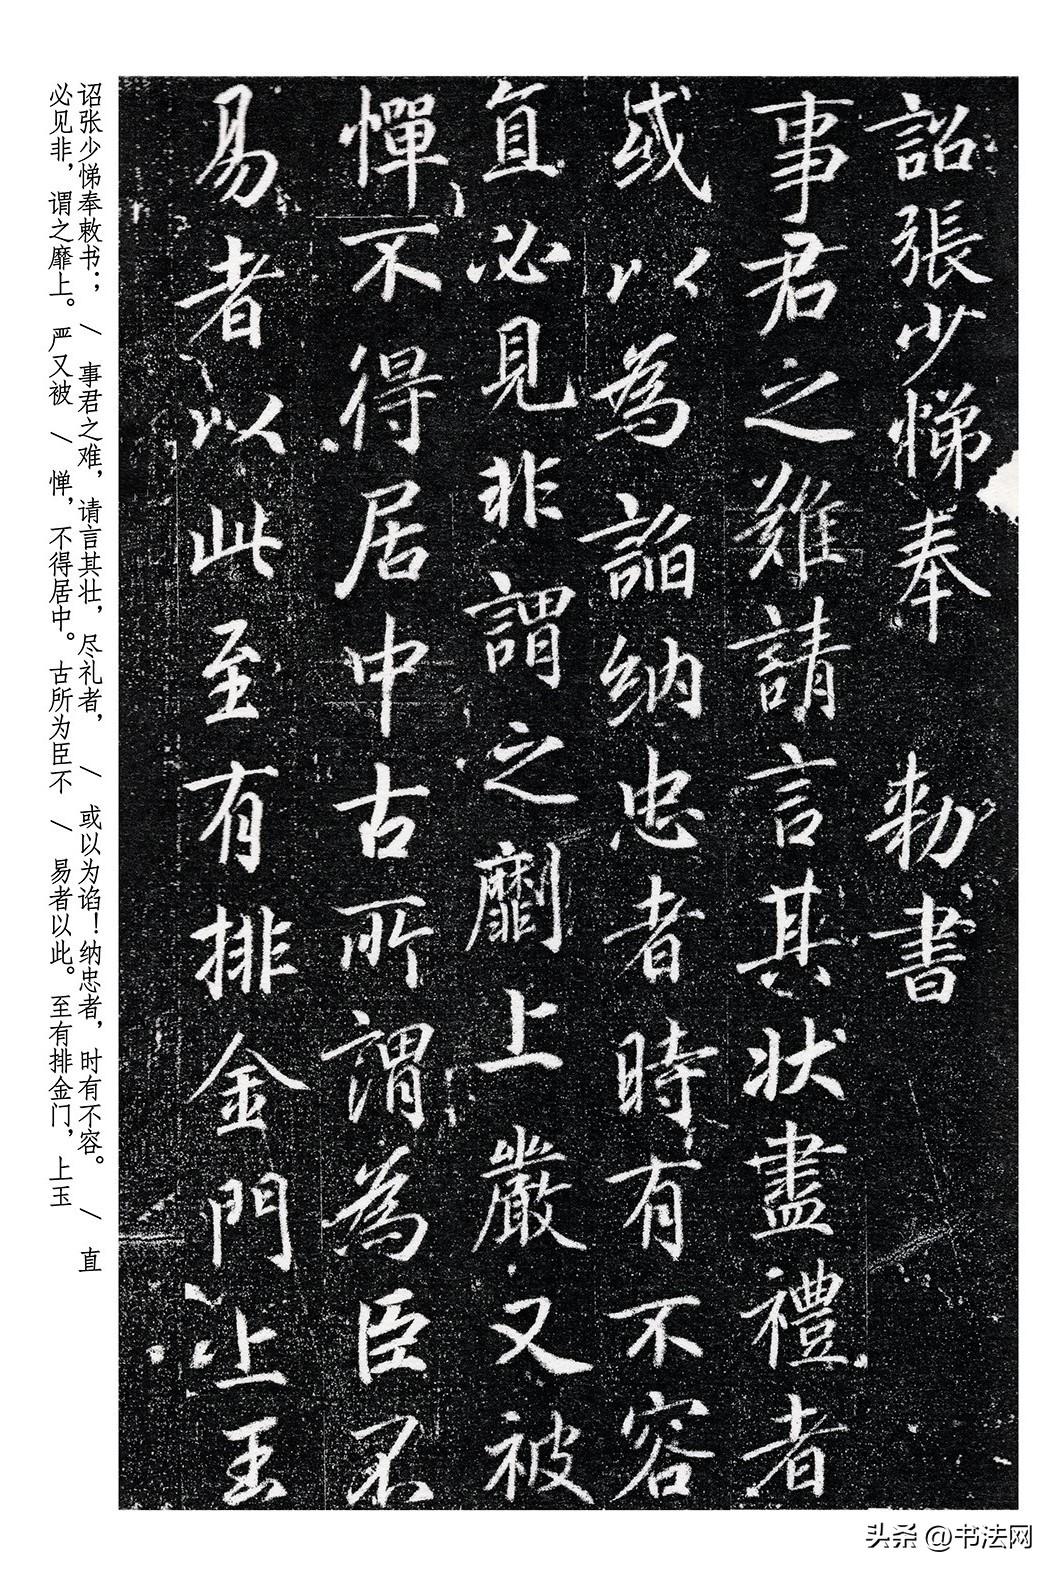 詔張少悌奉 勑書
事君之難請言其狀盡禮者
或以為諂納忠者時有不容
直必見非謂之劘上嚴又被
憚不得居中古所謂為臣不
易者以此至有排金門上玉
诏张少悌奉敕书； / 事君之难，请言其壮，尽礼者， / 或以为谄！纳忠者，时有不容。 / 直
必见非，谓之靡上。严又被 / 惮，不得居中。古所为臣不 / 易者以此。至有排金门，上玉
头条 @书法网